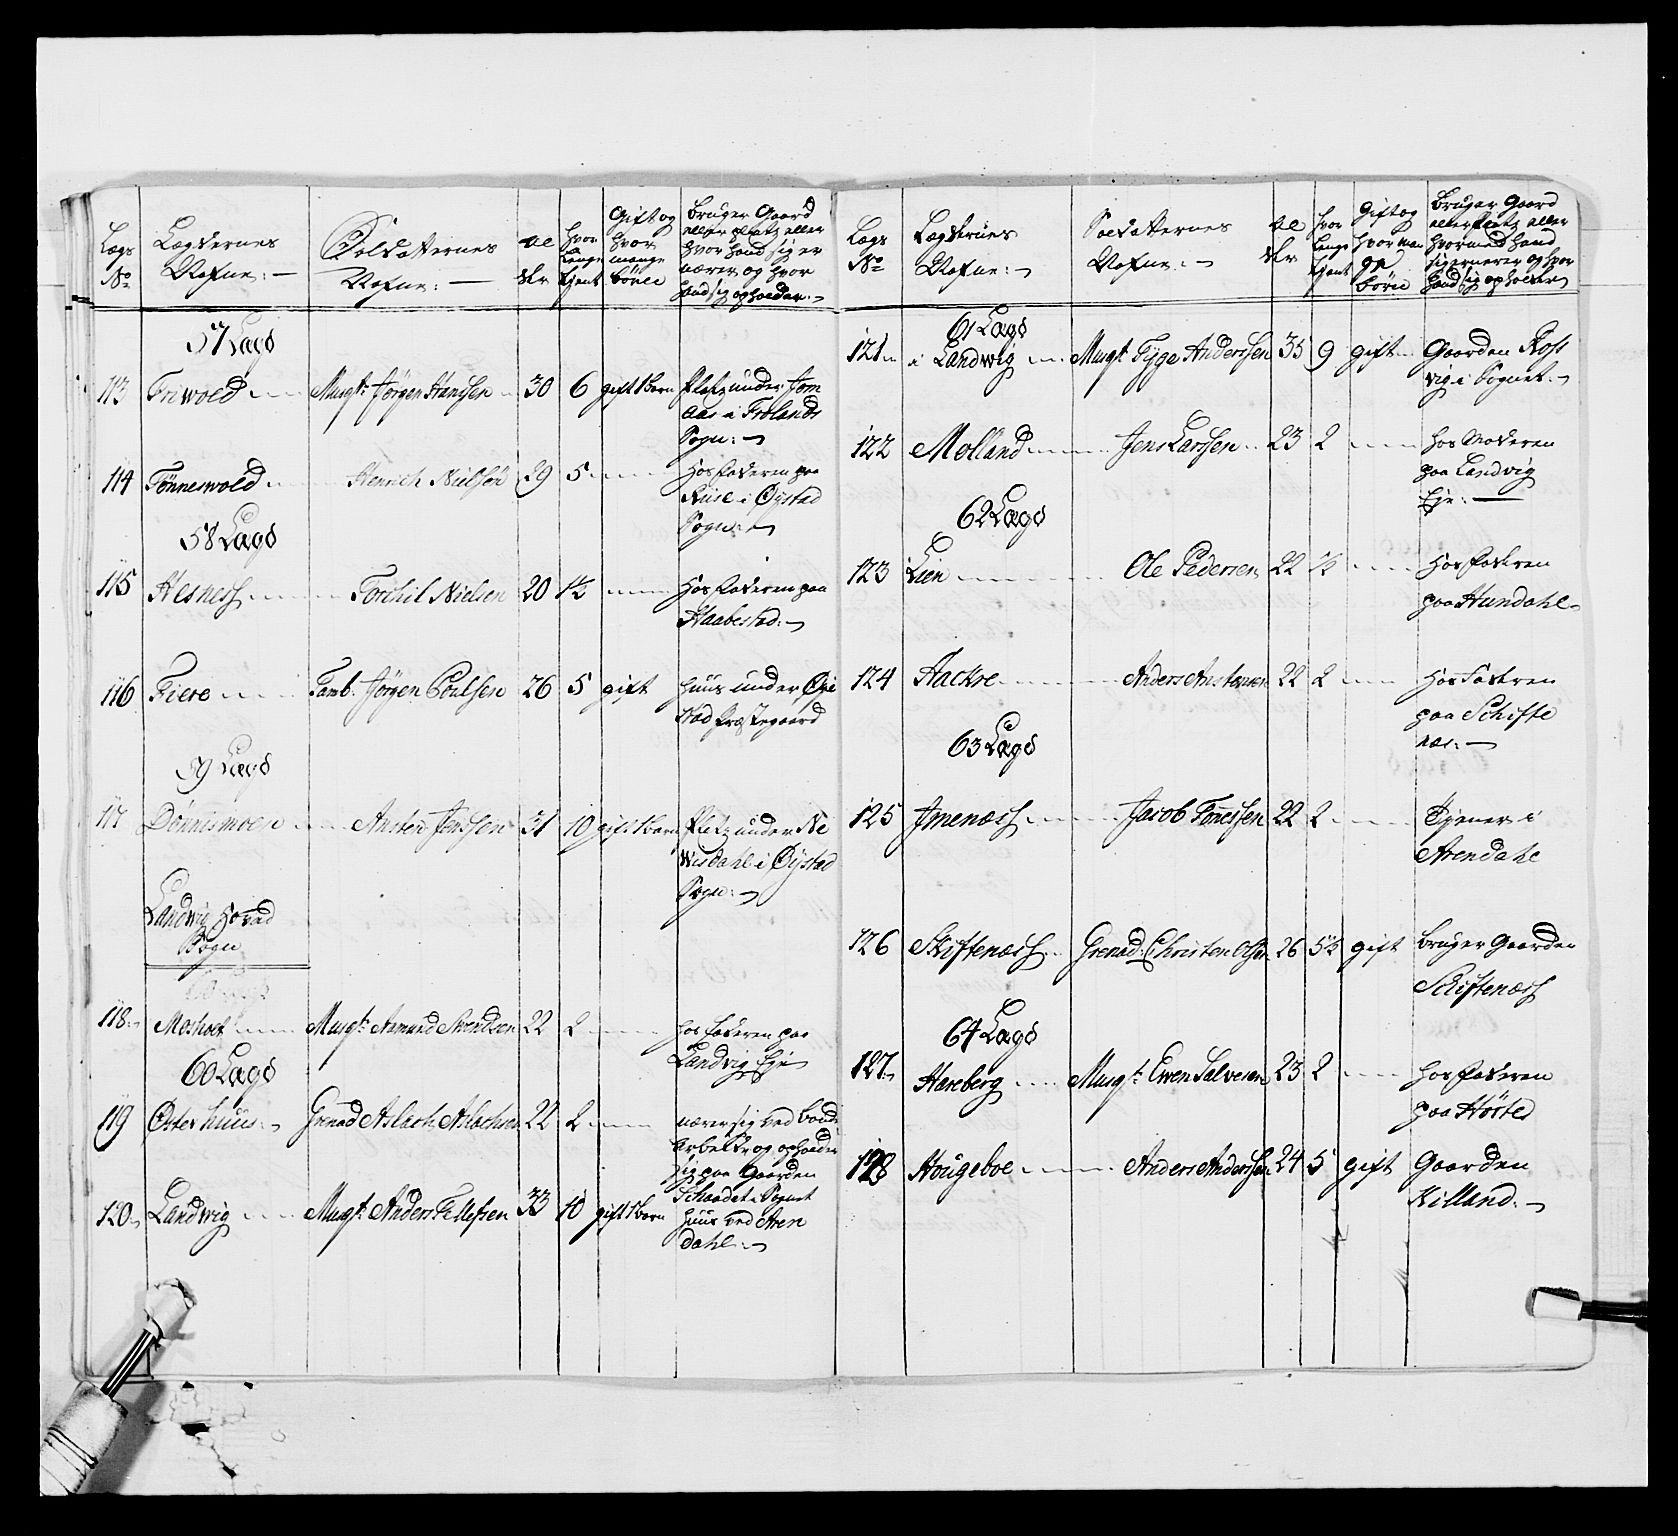 Lægs No
Lægdernes Nafne:
Soldatternes Nafne:
Al der
hvor længe tjent
Gift og hvor mange børn
Bruger Gaard eller platz eller hvor hand sig er nærer og hvor hand sig opholder:
57 Lægd
113 Friwold Musqt: Jørgen Hanssen 30 6 gift 1 barn Pletz under Jom
aas i Frolands
Sogn:
114 Tønneswold Henrich Nielsen 29 5 hos faderen paa
Riise i Øystad
Sogn:
58 Lægd
115 Hesness Torchil Nielsen 20 1½ hos faderen paa
Haabestad:
116 Fiere Tamb: Jørgen Poulsen 26 5 gift huus under Øyе
stad Præstegaard
59 Lægd
117 Dønnismoen Ansten Jenssen 31 10 gift 1 barn Pletz under Ne
wisdahl i Øystad
Sogn:
Landwig Hovad
Sogn
118 Musqt: Asmund Swendsen 22 2 hos faderen paa
Landvig Eje
60 Lægd
119 Østerhuus Grenad Aslach Aslachsen 22 2 nærer sig ved bonde
Arbeide og opholder
sig paa Gaarden
i Sognet
120 Landwig Musqt: Anders Tellefsen 33 10 gift 1 barn huus ved Aren
dahl:
Lægs No
Lægdernes Nafne:
Soldatternes Nafne:
Al der
hvor længe tjent
Gift og hvor mange børn
Bruger Gaard eller pletz eller hvormed hand sig ernærer og hvor hand sig opholder
61 Lægd
121 i Landwig Musqt: Tyge Anderssen 35 9 gift Gaarden Ros
vig i Sognet:
122 Molland Jens Larssen 23 2 hos Moderen
paa Landvig
Eje:
62 Lægd
123 Lien Ole Pedersen 22 ½ hos faderen
paa Hundahl
124 Hackre Anders 22 2 hos Faderen
paa Schifte
næs:
63 Lægd
125 Jmenæss Jacob Tønessen 22 2 Tjener i
Arendahl
126 Skiftenæss Grenad: Christen Olsen 26 5½ gift bruger Gaarden
Schiftenæss
64 Lægd
127 Hareberg Musqt: Ewen Salvesen 23 2 hos faderen
paa Hørte
128 Hougeboe Anders Anderssen 24 5 gift Gaarden
Killand: